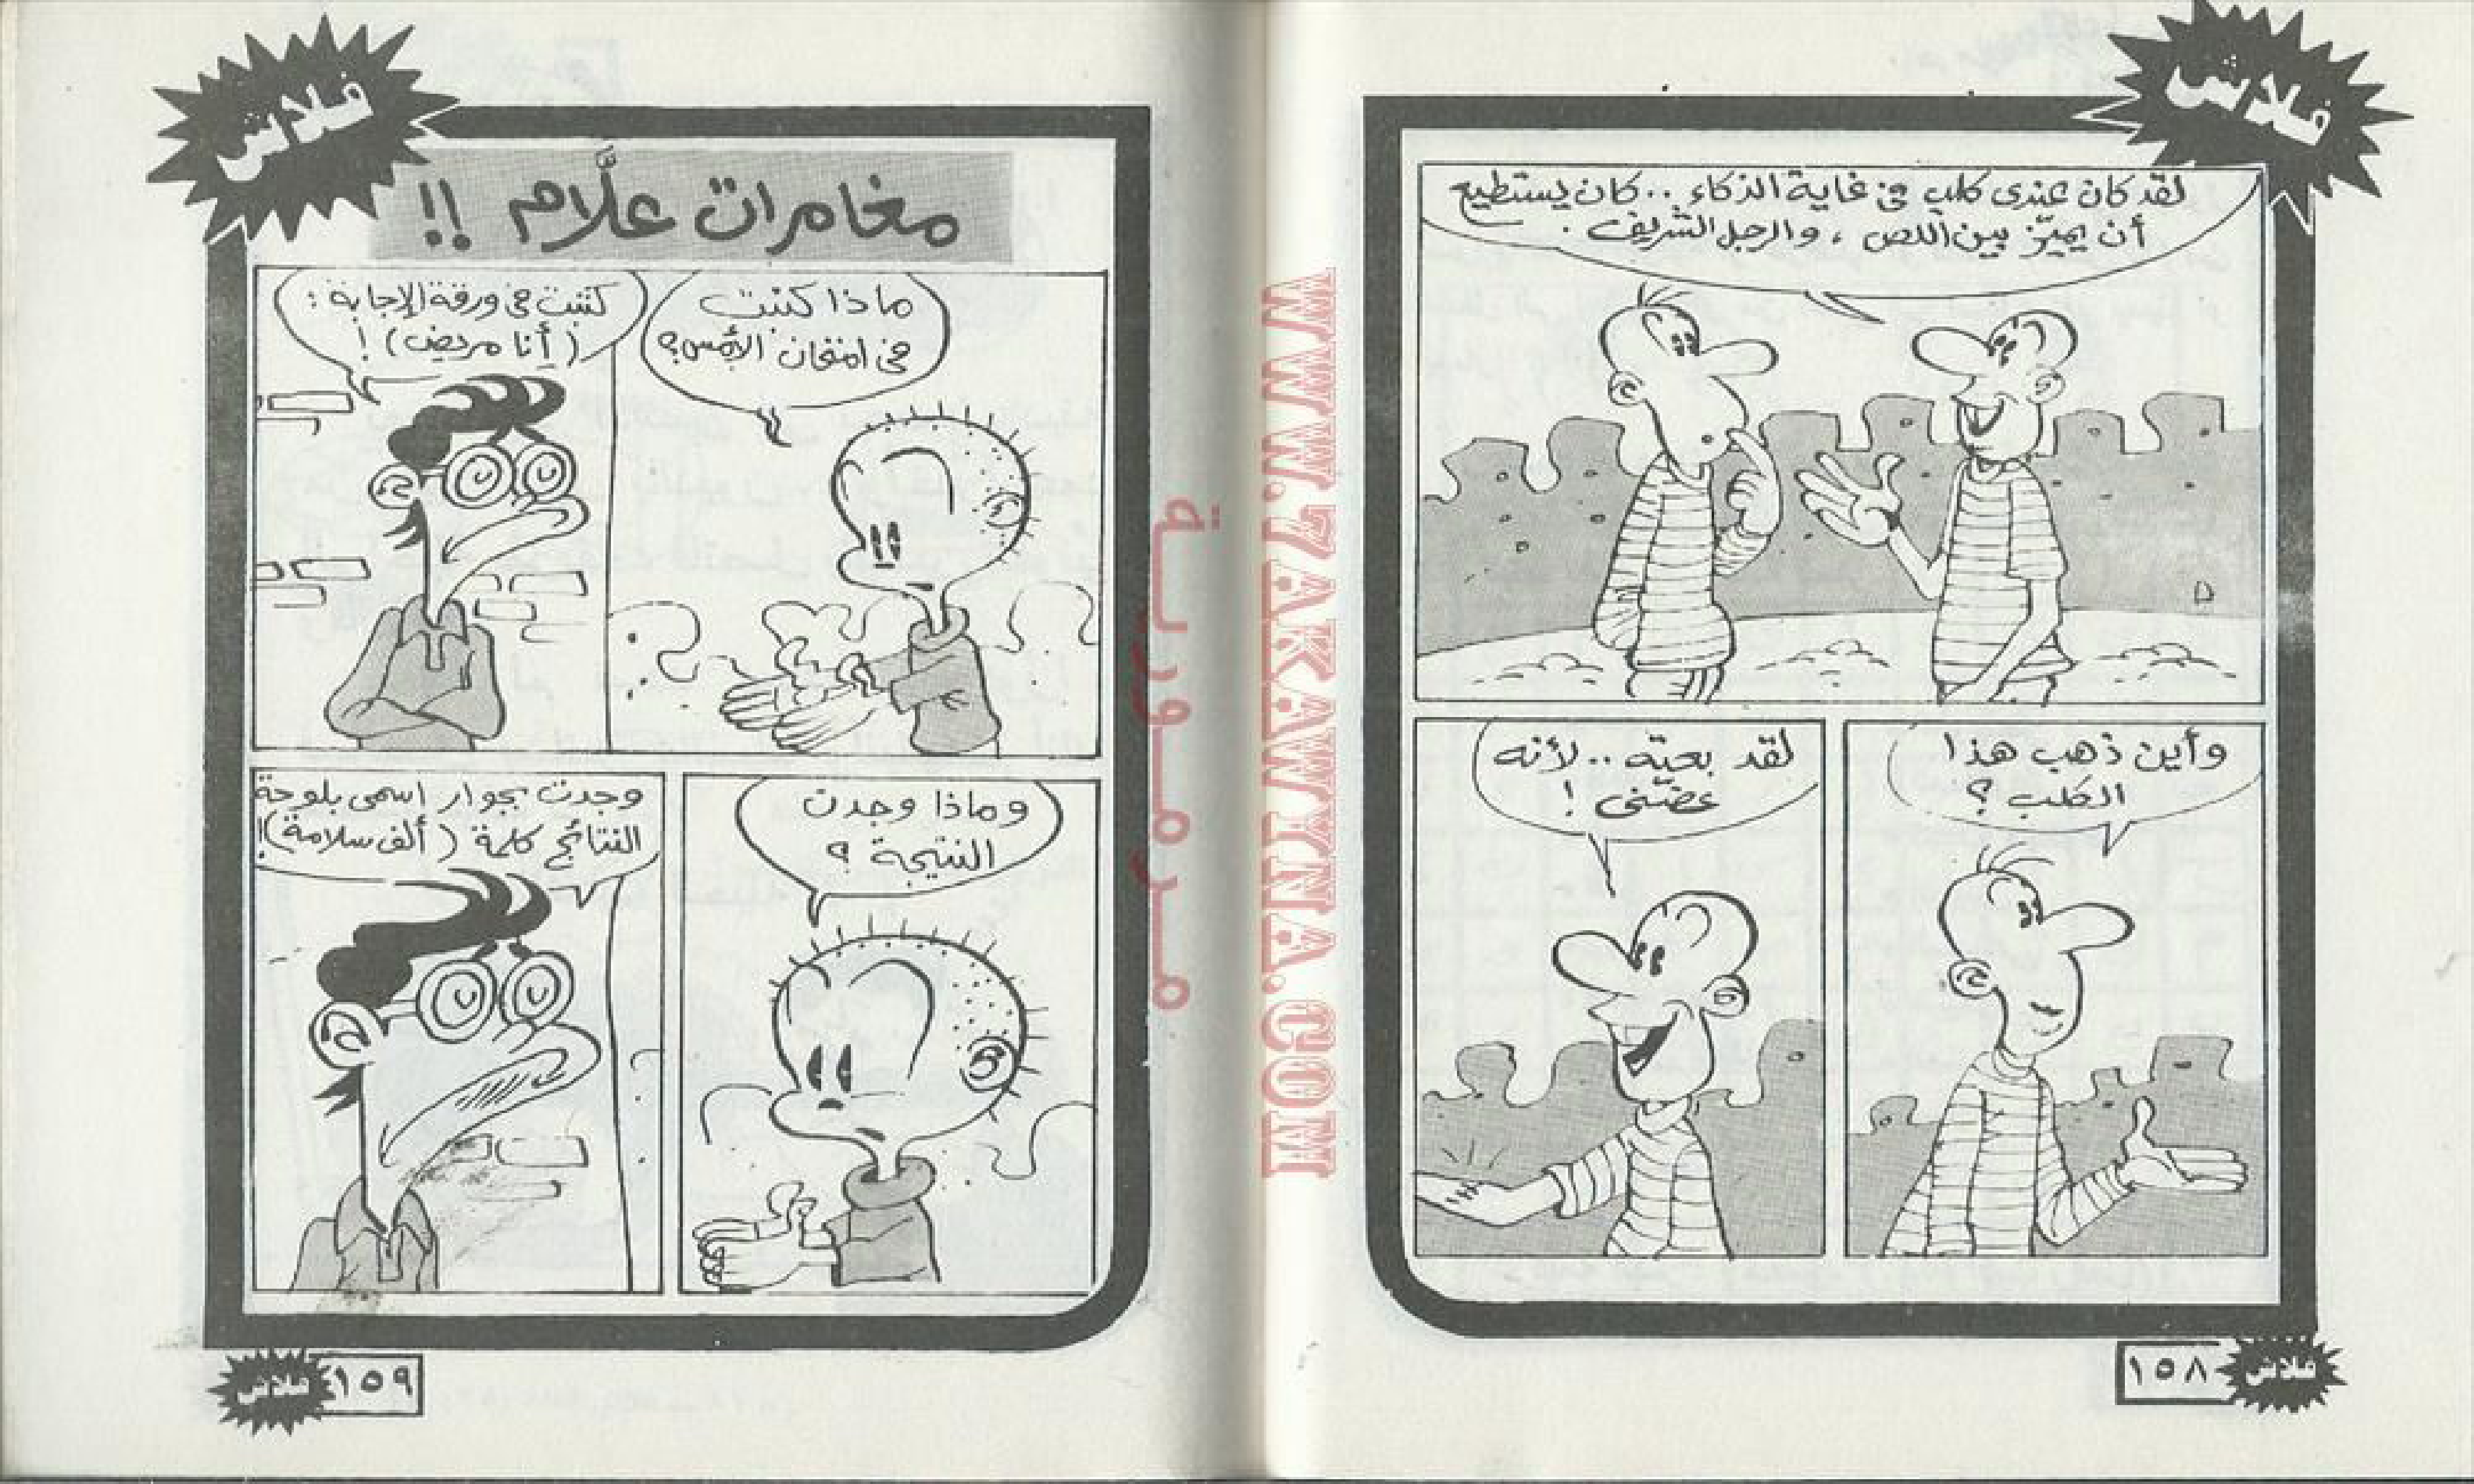 فلاش
لقد كان عندى كلب فى غاية الذكاء .. كان يستطيع
أن يميّز بين اللص ، والرجل الشريف .
وأين ذهب هذا
الكلب ؟
لقد بعته .. لأنه
عضّنى !
١٥٨
فلاش
فلاش
مغامرات علَّام !!
ماذا كتبت
فى امتحان الأمس؟
كتبت فى ورقة الإجابة :
( أنا مريض ) !
وماذا وجدت
النتيجة ؟
وجدت بجوار اسمى بلوحة
النتائج كلمة ( ألف سلامة)!
١٥٩
فلاش
WWW.7AKAWINA.COM